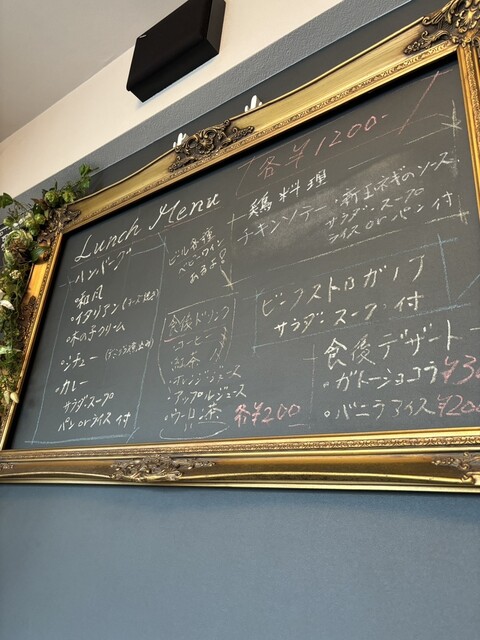 Lunch Menu
各¥1200-
ハンバーグ
・和風
・イタリアン(チーズ
・木の子クリーム
・シチュー
・カレー
サラダスープ
パンorライス付
ビール各種
ベビーワイン
あるよ!
食後ドリンク
・コーヒー
・紅茶
・オレンジジュース
・アップルジュース
・ウーロン茶
各¥200
鶏料理
チキンソテー・新玉ネギのソース
サラダ・スープ
ライスorパン付
ビーフストロガノフ
サラダ・スープ・付
食後デザート
・ガトーショコラ¥30
・バニラアイス¥200